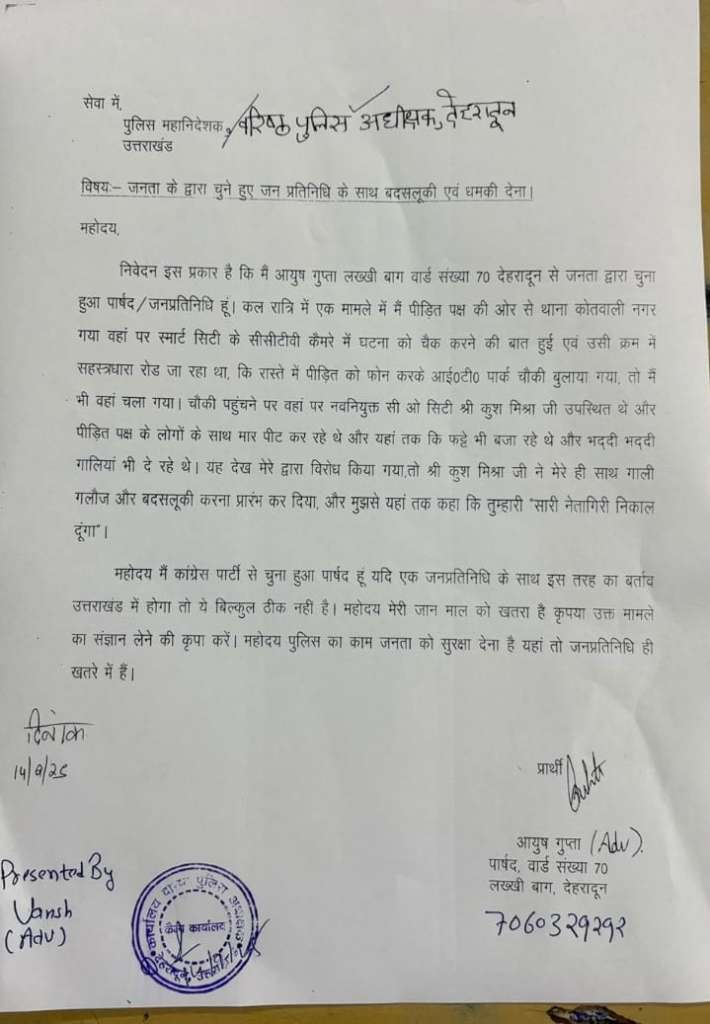 सेवा में,
पुलिस महानिदेशक, / वरिष्ठ पुलिस अधीक्षक, देहरादून
उत्तराखंड
विषयः– जनता के द्वारा चुने हुए जन प्रतिनिधि के साथ बदसलूकी एवं धमकी देना।
महोदय,
निवेदन इस प्रकार है कि मैं आयुष गुप्ता लख्खी बाग वार्ड संख्या 70 देहरादून से जनता द्वारा चुना
हुआ पार्षद/जनप्रतिनिधि हूं। कल रात्रि में एक मामले में मैं पीड़ित पक्ष की ओर से थाना कोतवाली नगर
गया वहां पर स्मार्ट सिटी के सीसीटीवी कैमरे में घटना को चैक करने की बात हुई एवं उसी क्रम में
सहस्त्रधारा रोड जा रहा था, कि रास्ते में पीड़ित को फोन करके आई0टी0 पार्क चौकी बुलाया गया, तो मैं
भी वहां चला गया। चौकी पहुंचने पर वहां पर नवनियुक्त सी ओ सिटी श्री कुश मिश्रा जी उपस्थित थे और
पीड़ित पक्ष के लोगों के साथ मार पीट कर रहे थे और यहां तक कि फट्टे भी बजा रहे थे और भद्दी भद्दी
गालियां भी दे रहे थे। यह देख मेरे द्वारा विरोध किया गया,तो श्री कुश मिश्रा जी ने मेरे ही साथ गाली
गलौज और बदसलूकी करना प्रारंम कर दिया, और मुझसे यहां तक कहा कि तुम्हारी "सारी नेतागिरी निकाल
दूंगा"।
महोदय मैं कांग्रेस पार्टी से चुना हुआ पार्षद हूं यदि एक जनप्रतिनिधि के साथ इस तरह का बर्ताव
उत्तराखंड में होगा तो ये बिल्कुल ठीक नही है। महोदय मेरी जान माल को खतरा है कृपया उक्त मामले
का संज्ञान लेने की कृपा करें। महोदय पुलिस का काम जनता को सुरक्षा देना है यहां तो जनप्रतिनिधि ही
खतरे में हैं।
दिनांक
14/9/25
प्रार्थी
आयुष गुप्ता (Adv).
पार्षद, वार्ड संख्या 70
लख्खी बाग, देहरादून
7060329292
Presented By
Vansh
(Adv)
कार्यालय पुलिस
कार्यालय